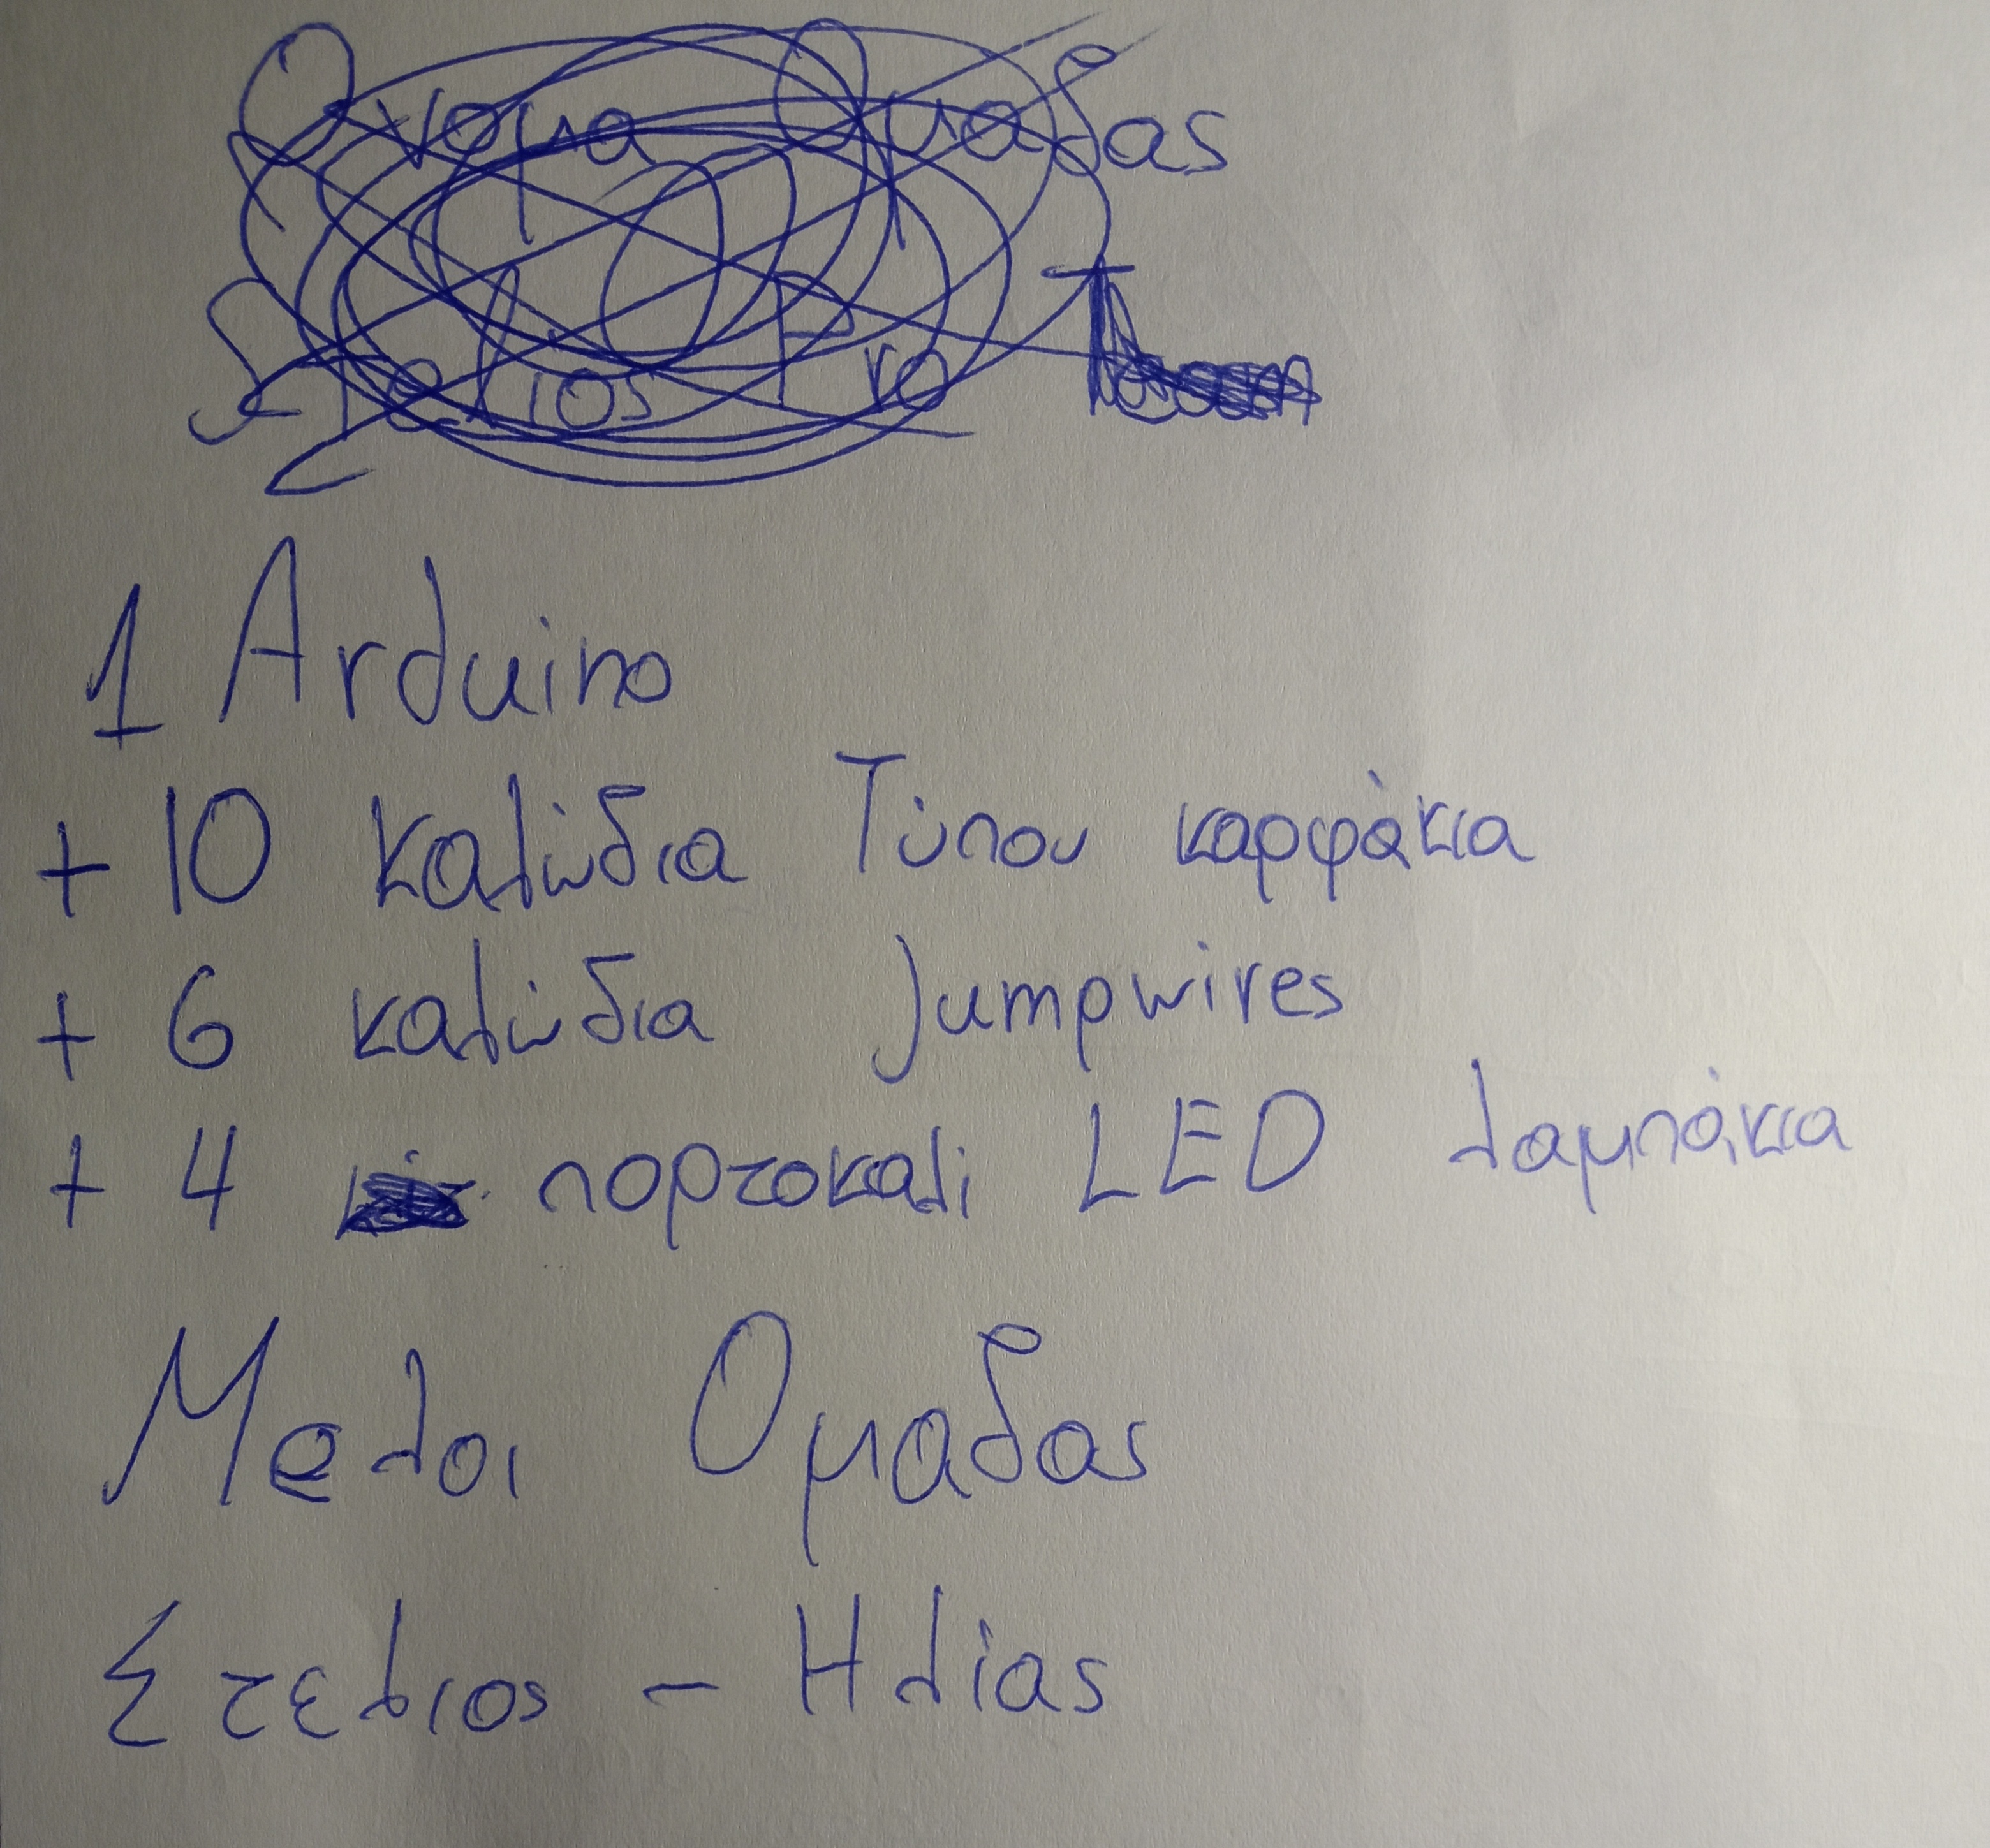 Ονομα Ομαδας
Pro
1 Arduino
+ 10 καλώδια Τύπου καρφάκια
+ 6 καλώδια Jumpwires
+ 4 πορτοκαλί LED λαμπάκια
Μελοι Ομαδας
Στελιος - Ηλίας